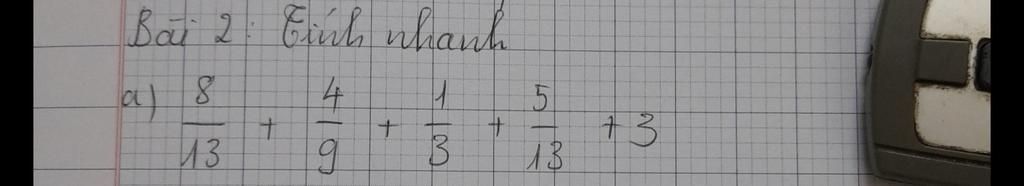 Bài 2: Tính nhanh
a) 8/13 + 4/9 + 1/3 + 5/13 + 3